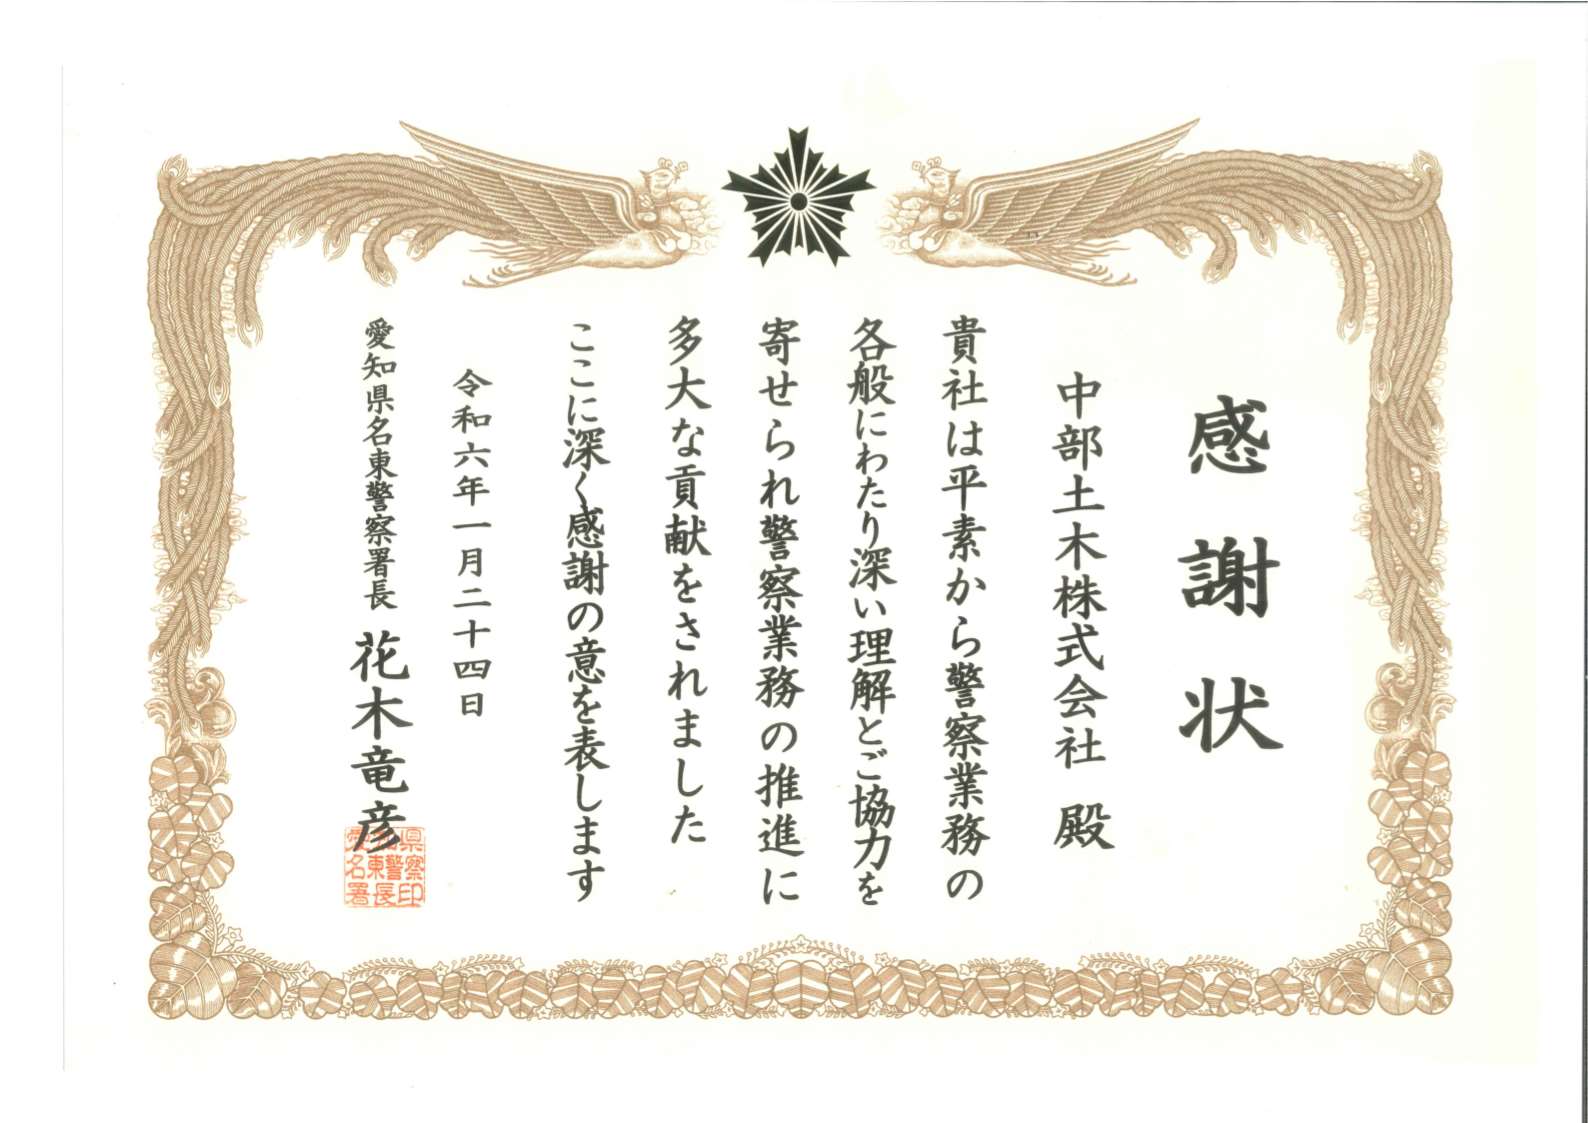 感謝状
中部土木株式会社 殿
貴社は平素から警察業務の
各般にわたり深い理解とご協力を
寄せられ警察業務の推進に
多大な貢献をされました
ここに深く感謝の意を表します
令和六年一月二十四日
愛知県名東警察署長 花木竜彦
県察印
知警長
愛名東署